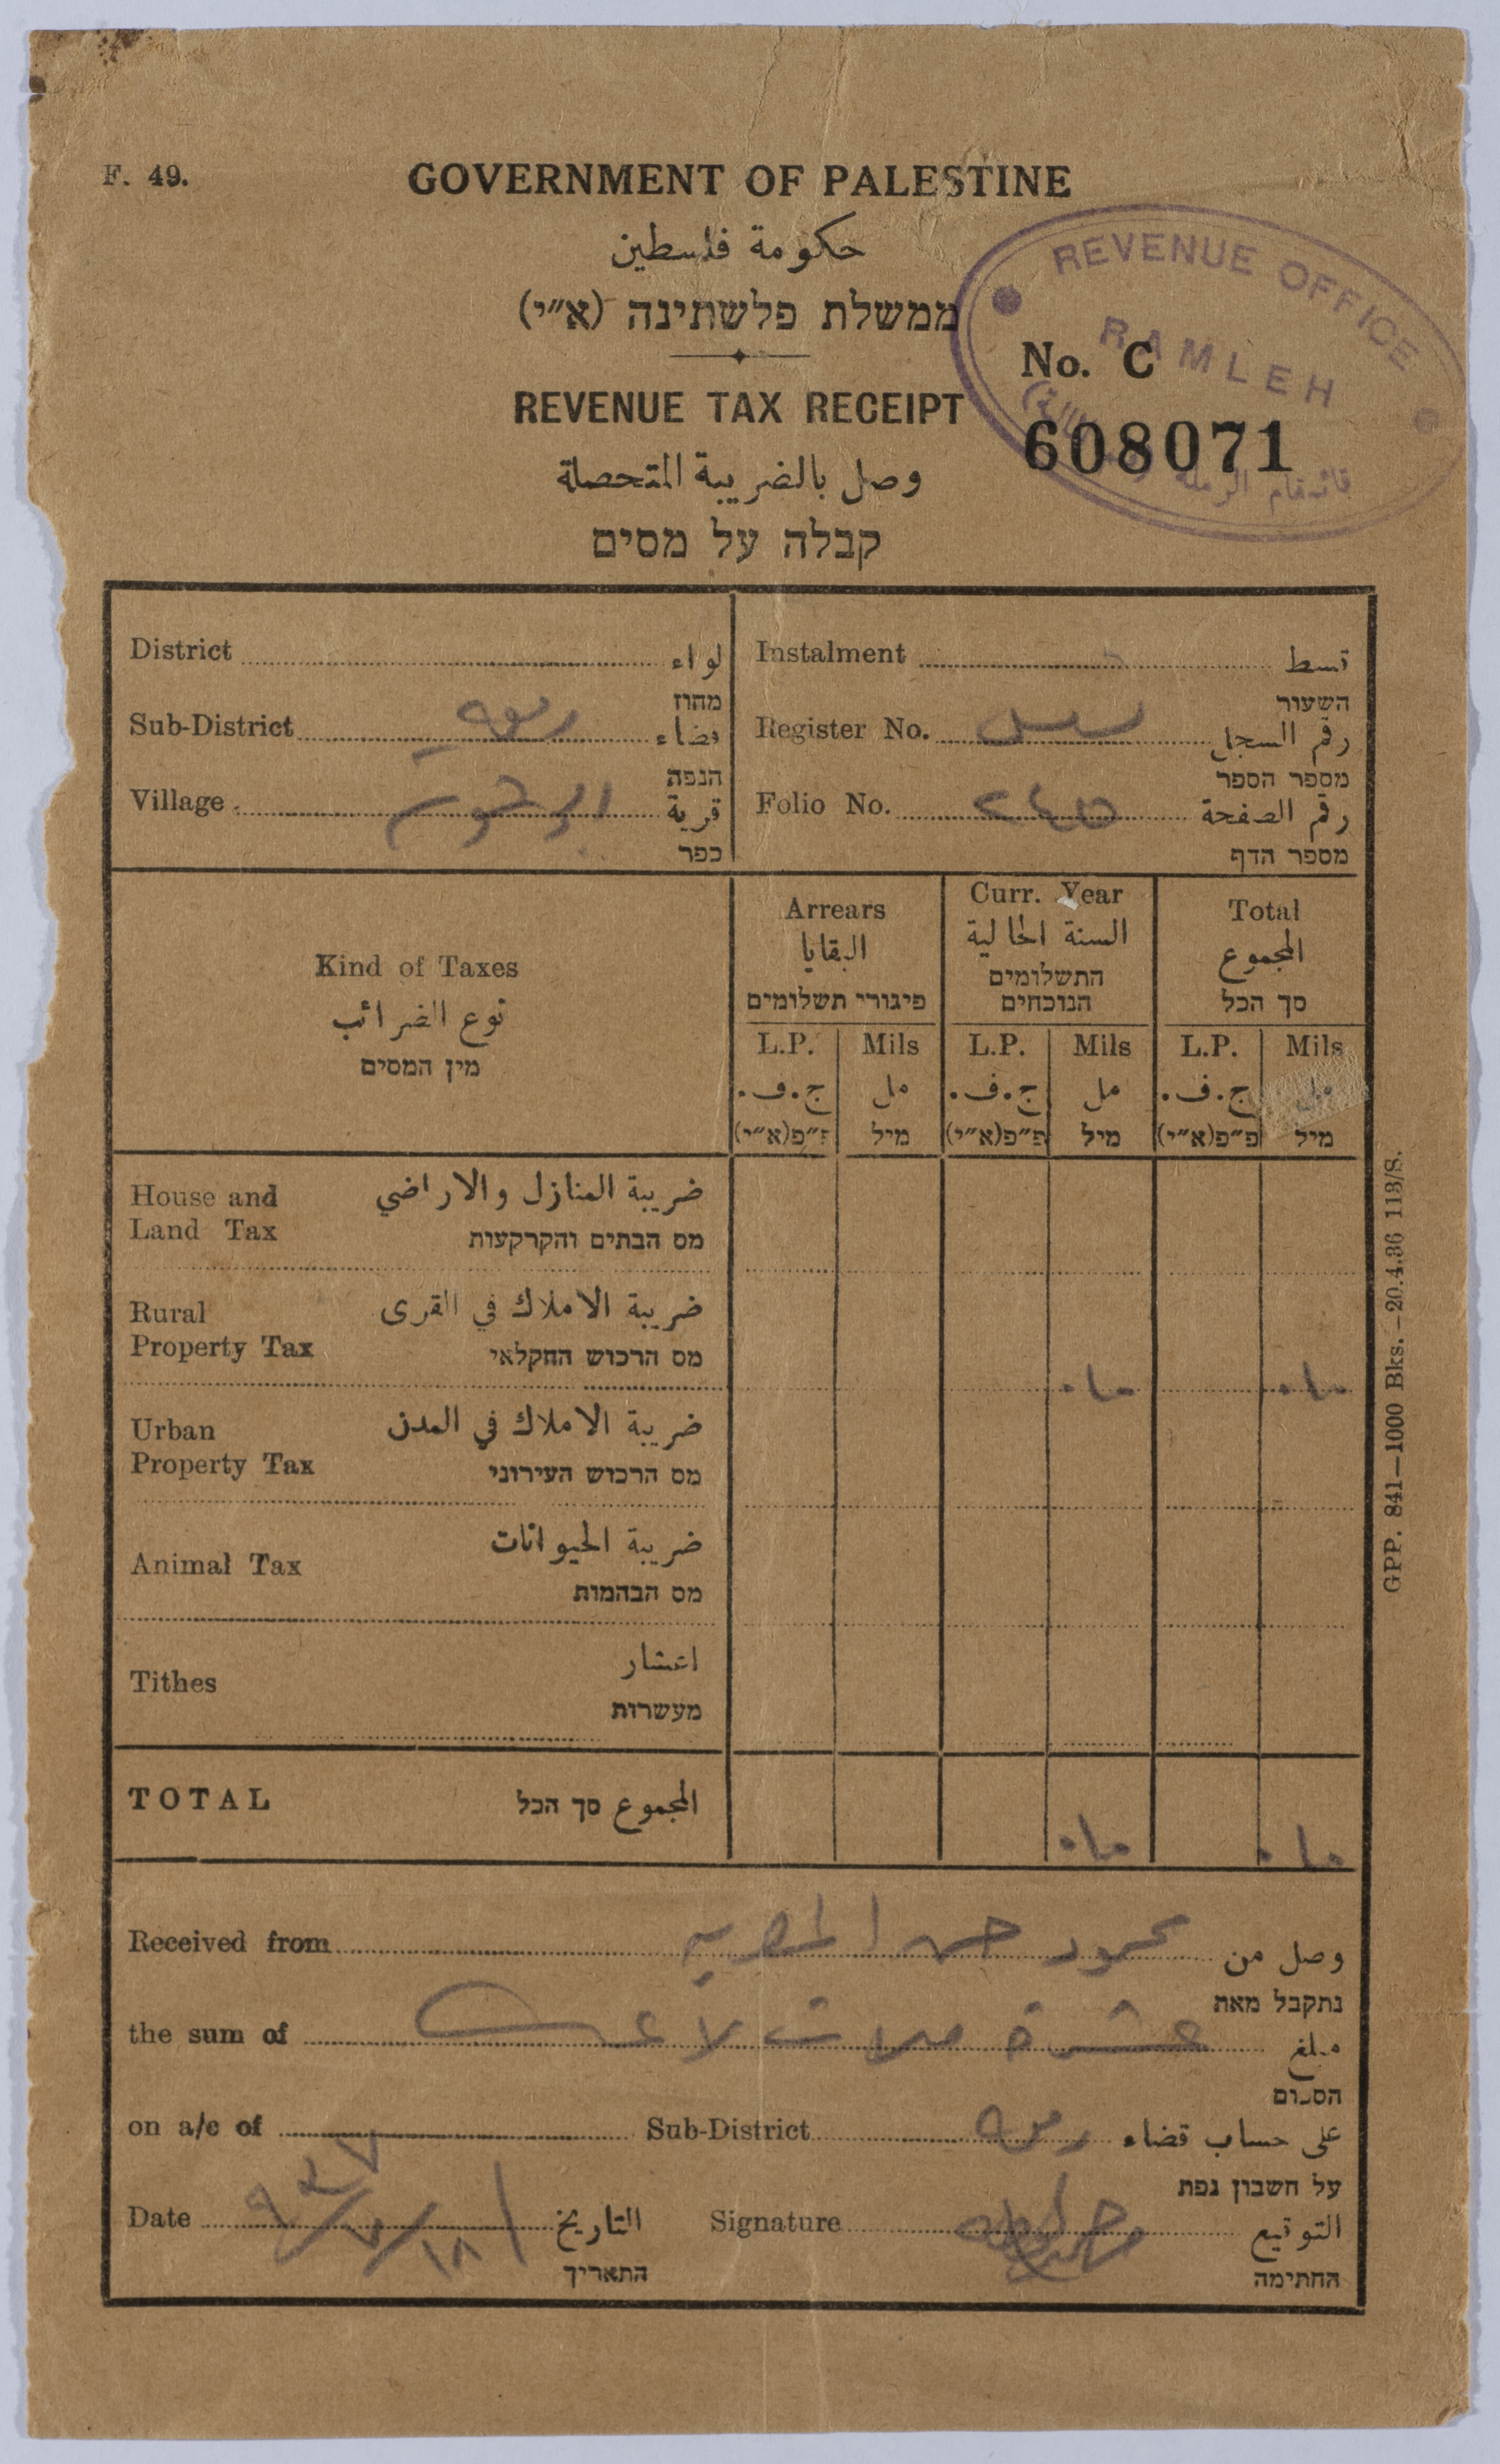 F. 49.
GOVERNMENT OF PALESTINE
حكومة فلسطين
ממשלת פלשתינה (א״י)
REVENUE OFFICE
RAMLEH
قائمقام الرملة
No. C
608071
REVENUE TAX RECEIPT
وصل بالضريبة المتحصلة
קבלה על מסים
District لواء
מחוז
Sub-District قضاء
הנפה
Village قرية
כפר
Instalment قسط
השעור
Register No. رقم السجل
מספר הספר
Folio No. ٢٤٥ رقم الصفحة
מספר הדף
Kind of Taxes
نوع الضرائب
מין המסים
Arrears
البقايا
פיגורי תשלומים
Curr. Year
السنة الحالية
התשלומים
הנוכחים
Total
المجموع
סך הכל
L.P. Mils L.P. Mils L.P. Mils
ج.ف. مل ج.ف. مل ج.ف. مل
פ״פ(א״י) מיל פ״פ(א״י) מיל פ״פ(א״י) מיל
House and
Land Tax
ضريبة المنازل والاراضي
מס הבתים והקרקעות
Rural
Property Tax
ضريبة الاملاك في القرى
מס הרכוש החקלאי
٠١٠ ٠١٠
Urban
Property Tax
ضريبة الاملاك في المدن
מס הרכוש העירוני
Animal Tax
ضريبة الحيوانات
מס הבהמות
Tithes
اعشار
מעשרות
TOTAL المجموع סך הכל ٠١٠ ٠١٠
Received from محمود حسن وصل من
נתקבל מאת
the sum of عشرة ملات لا غير مبلغ
הסכום
on a/c of Sub-District رمله على حساب قضاء
על חשבון נפת
Date ١٨/٧/٩٣٧ التاريخ
התאריך
Signature التوقيع
החתימה
GPP. 841—1000 Bks.—20.4.36 113/S.